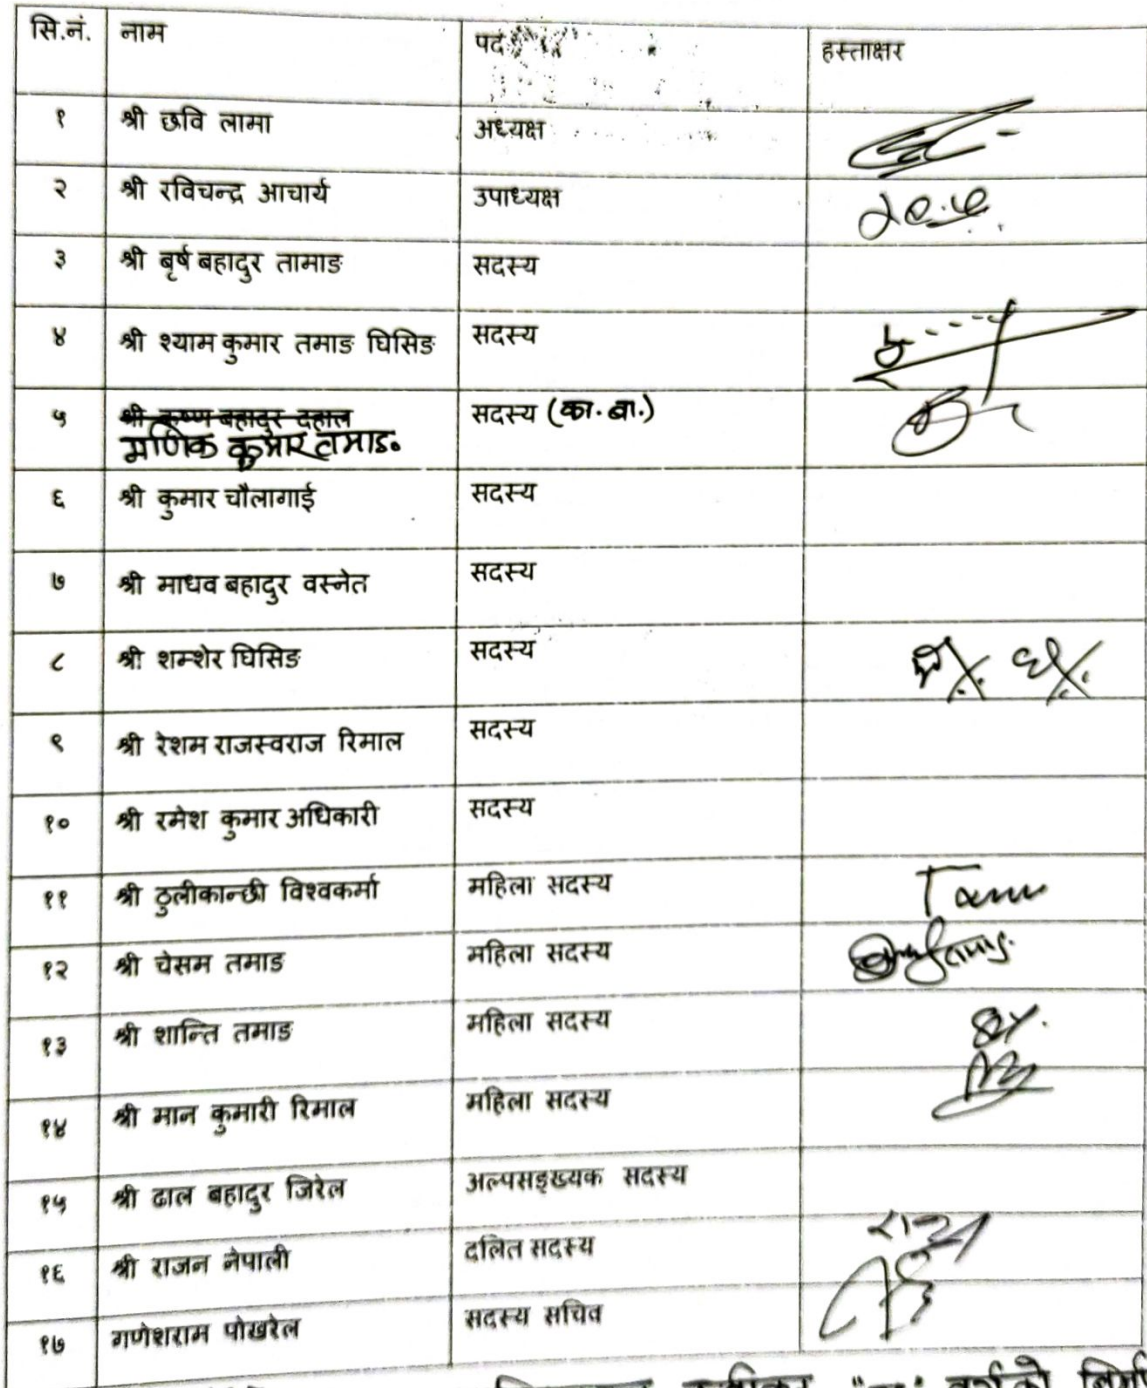 सि.नं. नाम पद हस्ताक्षर
१ श्री छवि लामा अध्यक्ष
२ श्री रविचन्द्र आचार्य उपाध्यक्ष
३ श्री बृर्ष बहादुर तामाङ सदस्य
४ श्री श्याम कुमार तमाङ घिसिङ सदस्य
५ श्री कृष्ण बहादुर दहाल सदस्य (का. बा.)
माणिक कुमार तमाङ
६ श्री कुमार चौलागाई सदस्य
७ श्री माधव बहादुर वस्नेत सदस्य
८ श्री शम्शेर घिसिङ सदस्य
९ श्री रेशम राजस्वराज रिमाल सदस्य
१० श्री रमेश कुमार अधिकारी सदस्य
११ श्री ठुलीकान्छी विश्वकर्मा महिला सदस्य
१२ श्री चेसम तमाङ महिला सदस्य
१३ श्री शान्ति तमाङ महिला सदस्य
१४ श्री मान कुमारी रिमाल महिला सदस्य
१५ श्री ढाल बहादुर जिरेल अल्पसङ्ख्यक सदस्य
१६ श्री राजन नेपाली दलित सदस्य
१७ गणेशराम पोखरेल सदस्य सचिव